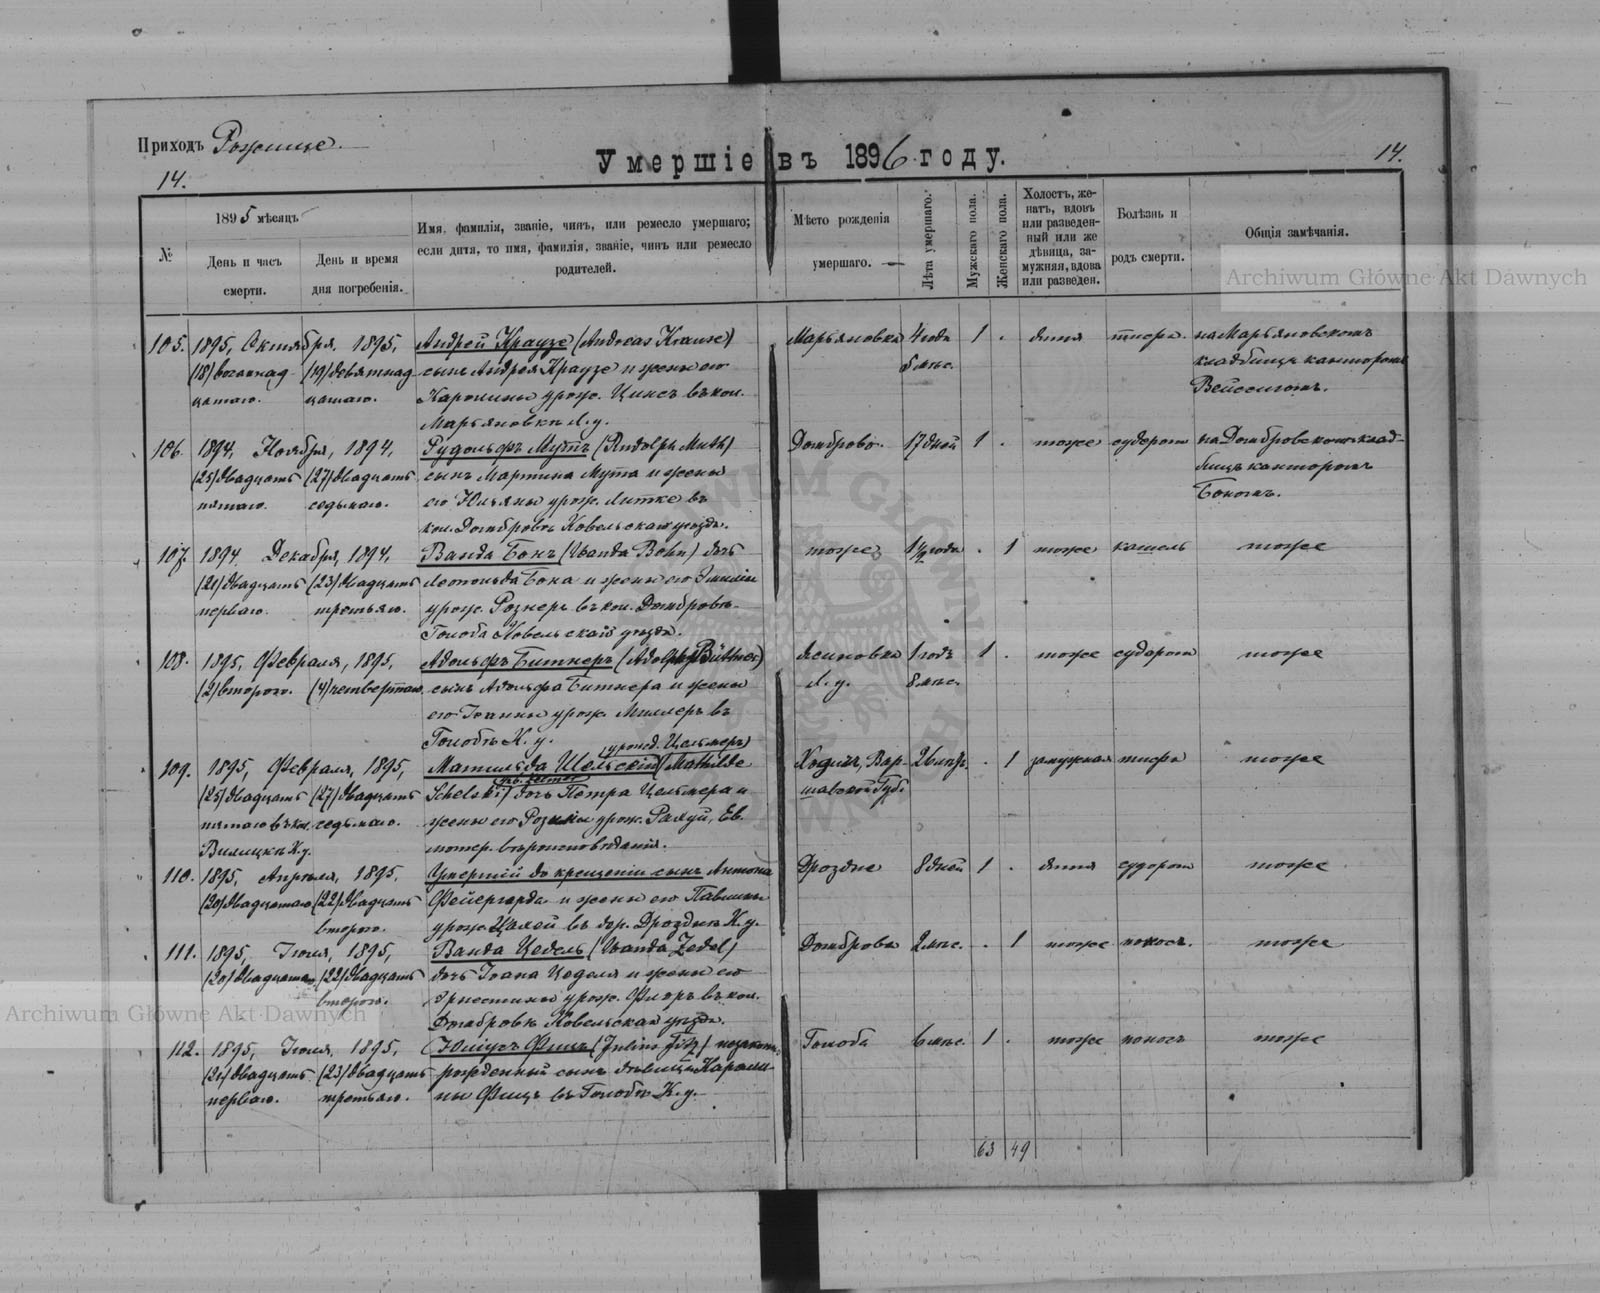 Приходъ Рожище.
Умершіе въ 1896 году.
14.
14.
№
1895 мѣсяцъ
День и часъ смерти.
День и время дня погребенія.
Имя, фамилія, званіе, чинъ, или ремесло умершаго;
если дитя, то имя, фамилія, званіе, чинъ или ремесло
родителей.
Мѣсто рожденія
умершаго.
Лѣта умершаго.
Мужскаго пола.
Женскаго пола.
Холостъ, же-
натъ, вдовъ
или разведен-
ный или же
дѣвица, за-
мужняя, вдова
или разведен.
Болѣзнь и
родъ смерти.
Общія замѣчанія.
Archiwum Główne Akt Dawnych
105. 1895, Октября, 1895, Андрей Краузе (Andreas Krause) Марьяновка 4 года 1 . дитя на Марьяновскомъ
(18) восемнад- (19) девятнад- сынъ Андрея Краузе и жены его 5 мѣс. кладбищѣ канторомъ
цатаго. цатаго. Каролины урож. Цинсъ въ кол.
Марьяновкѣ Л. у.
106. 1894, Ноября, 1894, Рудольфъ Мутъ (Rudolph Muth) Домброво 17 дней 1 . тоже судороги на Домбровскомъ клад-
(25) двадцать (27) двадцать сынъ Мартина Мута и жены бищѣ канторомъ
пятаго. седьмаго. его Юльяны урож. Литке въ Бономъ.
кол. Домбровѣ Ковельскаго уѣзда.
107. 1894, Декабря, 1894, Ванда Бонъ (Wanda Bohn) дочь тоже 1½ года . 1 тоже кашель тоже
(21) двадцать (23) двадцать Леопольда Бона и жены его Эмиліи
перваго. третьяго. урож. Рознеръ въ кол. Домбровѣ-
Голоба Ковельскаго уѣзда.
108. 1895, Февраля, 1895, Адольфъ Битнеръ (Adolph Büttner) Ясиновка 1 годъ 1 . тоже судороги тоже
(2) второго. (4) четвертаго сынъ Адольфа Битнера и жены Л. у. 8 мѣс.
его Іоанны урож. Миллеръ въ
Голобѣ К. у.
(урожд. Цельмеръ)
109. 1895, Февраля, 1895, Матильда Шельскій (Mathilde 26 лѣтъ . 1 замужная тоже
(25) двадцать (27) двадцать Schelski) дочь Петра Цельмера и
пятаго въ кол. седьмаго. жены его Розаліи урож. Ев.
К. у. лютер. вѣроисповѣданія.
110. 1895, Апрѣля, 1895, Умершій до крещенія сынъ Антона Дроздне 8 дней 1 . дитя судороги тоже
(20) двадцатаго (22) двадцать Фейергарда и жены его Павлины
второго. урож. въ дер. Дроздни К. у.
111. 1895, Іюля, 1895, Ванда Цедель (Wanda Zedel) Домброва 2 мѣс. . 1 тоже поносъ тоже
(20) двадцатаго (22) двадцать дочь Іоана Цеделя и жены его
второго. Эрнестины урож. въ кол.
Домбровѣ Ковельскаго уѣзда.
Archiwum Główne Akt Dawnych
112. 1895, Іюля, 1895, Юліусъ Фицъ (Julius Fitz) незаконно- Голоба 6 мѣс. 1 . тоже поносъ тоже
(21) двадцать (23) двадцать рожденный сынъ дѣвицы Кароли-
перваго. третьяго. ны Фицъ въ Голобѣ К. у.
63 49